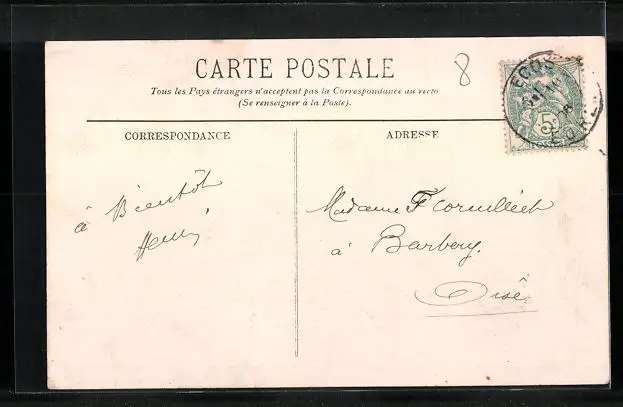 CARTE POSTALE
8
Tous les Pays étrangers n'acceptent pas la Correspondance au recto
(Se renseigner à la Poste).
CORRESPONDANCE
à Bientôt
Henri
ADRESSE
Madame F
à Barbery.
Oise
ECOS
EURE
5